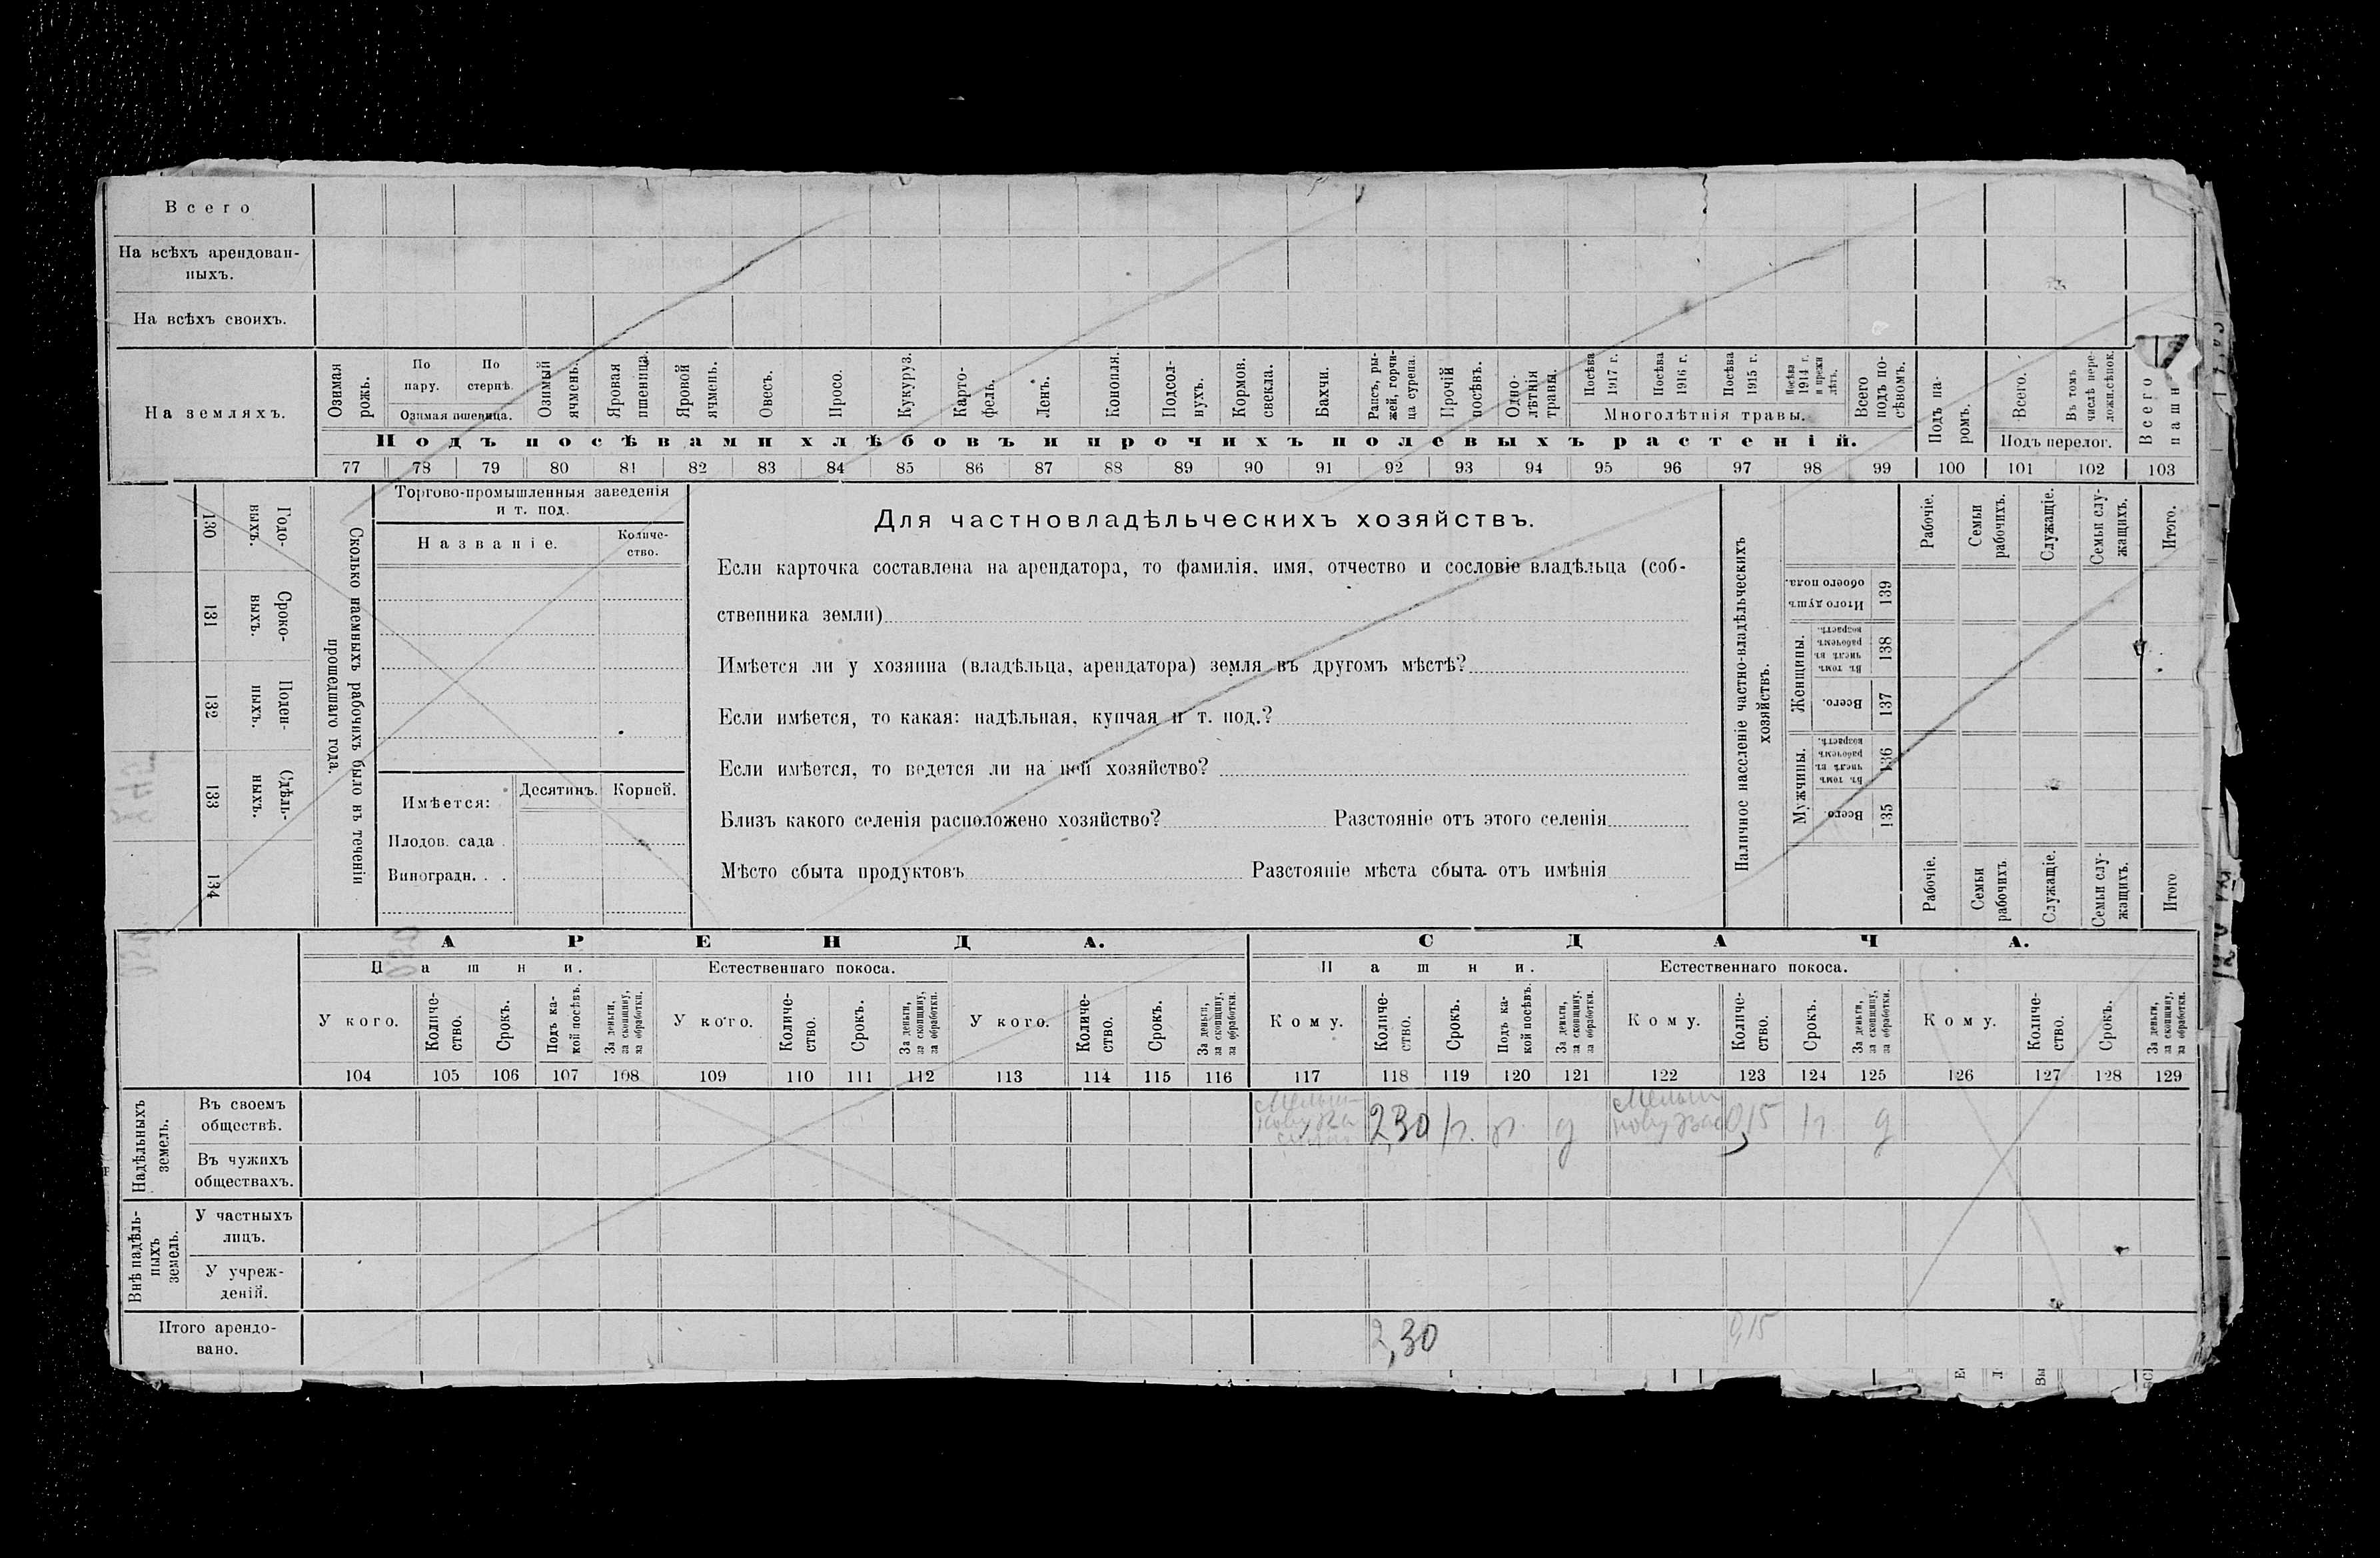 Всего
На всѣхъ арендован-
ныхъ.
На всѣхъ своихъ.
На земляхъ.
Озимая рожь.
По пару.
По стернѣ.
Озимая пшеница.
Озимый ячмень.
Яровая пшеница.
Яровой ячмень.
Овесъ.
Просо.
Кукуруз.
Карто-
фель.
Ленъ.
Конопля.
Подсол-
нухъ.
Кормов.
свекла.
Бахчи.
Рапсъ, ры-
жей, горчи-
ца сурепа.
Прочій
посѣвъ.
Одно-
лѣтнія
травы.
Посѣва
1917 г.
Посѣва
1916 г.
Посѣва
1915 г.
Посѣва
1914 г.
и прежн
лѣтъ.
Многолѣтнія травы.
Всего
подъ по-
сѣвомъ.
Подъ посѣвами хлѣбовъ и прочихъ полевыхъ растеній.
Подъ па-
ромъ.
Всего.
Въ томъ
числѣ пере-
ложн.сѣнок.
Подъ перелог.
Всего
пашн
77 78 79 80 81 82 83 84 85 86 87 88 89 90 91 92 93 94 95 96 97 98 99 100 101 102 103
Годо-
выхъ.
130
Сроко-
выхъ.
131
Поден-
ныхъ.
132
Сдѣль-
ныхъ.
133
134
Сколько наемныхъ рабочихъ было въ теченіи
прошедшаго года.
Торгово-промышленныя заведенія
и т. под.
Названіе.
Количе-
ство.
Имѣется:
Десятинъ.
Корней.
Плодов. сада .
Виноградн. . .
Для частновладѣльческихъ хозяйствъ.
Если карточка составлена на арендатора, то фамилія, имя, отчество и сословіе владѣльца (соб-
ственника земли)
Имѣется ли у хозяина (владѣльца, арендатора) земля въ другомъ мѣстѣ?
Если имѣется, то какая: надѣльная, купчая и т. под.?
Если имѣется, то ведется ли на ней хозяйство?
Близъ какого селенія расположено хозяйство? Разстояніе отъ этого селенія
Мѣсто сбыта продуктовъ Разстояніе мѣста сбыта отъ имѣнія
Наличное населеніе частно-владѣльческихъ
хозяйствъ.
Итого душъ
обоего пола.
139
Женщины.
Въ томъ
числѣ въ
рабочемъ
возрастѣ.
138
Всего.
137
Мужчины.
Въ томъ
числѣ въ
рабочемъ
возрастѣ.
136
Всего.
135
Рабочіе.
Семьи
рабочихъ.
Служащіе.
Семьи слу-
жащихъ.
Итого.
Рабочіе.
Семьи
рабочихъ
Служащіе.
Семьи слу-
жащихъ.
Итого
АРЕНДА.
СДАЧА.
Пашни.
Естественнаго покоса.
Пашни.
Естественнаго покоса.
У кого.
Количе-
ство.
Срокъ.
Подъ ка-
кой посѣвъ.
За деньги,
за скопщину,
за обработки.
У кого.
Количе-
ство.
Срокъ.
За деньги,
за скопщину,
за обработки.
У кого.
Количе-
ство.
Срокъ.
За деньги,
за скопщину,
за обработки.
Кому.
Количе-
ство.
Срокъ.
Подъ ка-
кой посѣвъ.
За деньги,
за скопщину,
за обработки.
Кому.
Количе-
ство.
Срокъ.
За деньги,
за скопщину,
за обработки.
Кому.
Количе-
ство.
Срокъ.
За деньги,
за скопщину,
за обработки.
104 105 106 107 108 109 110 111 112 113 114 115 116 117 118 119 120 121 122 123 124 125 126 127 128 129
Надѣльныхъ
земель.
Въ своемъ
обществѣ.
2,30
д
0,15
д
Въ чужихъ
обществахъ.
Внѣ надѣль-
ныхъ
земель.
У частныхъ
лицъ.
У учреж-
деній.
Итого арендо-
вано.
2,30
0,15